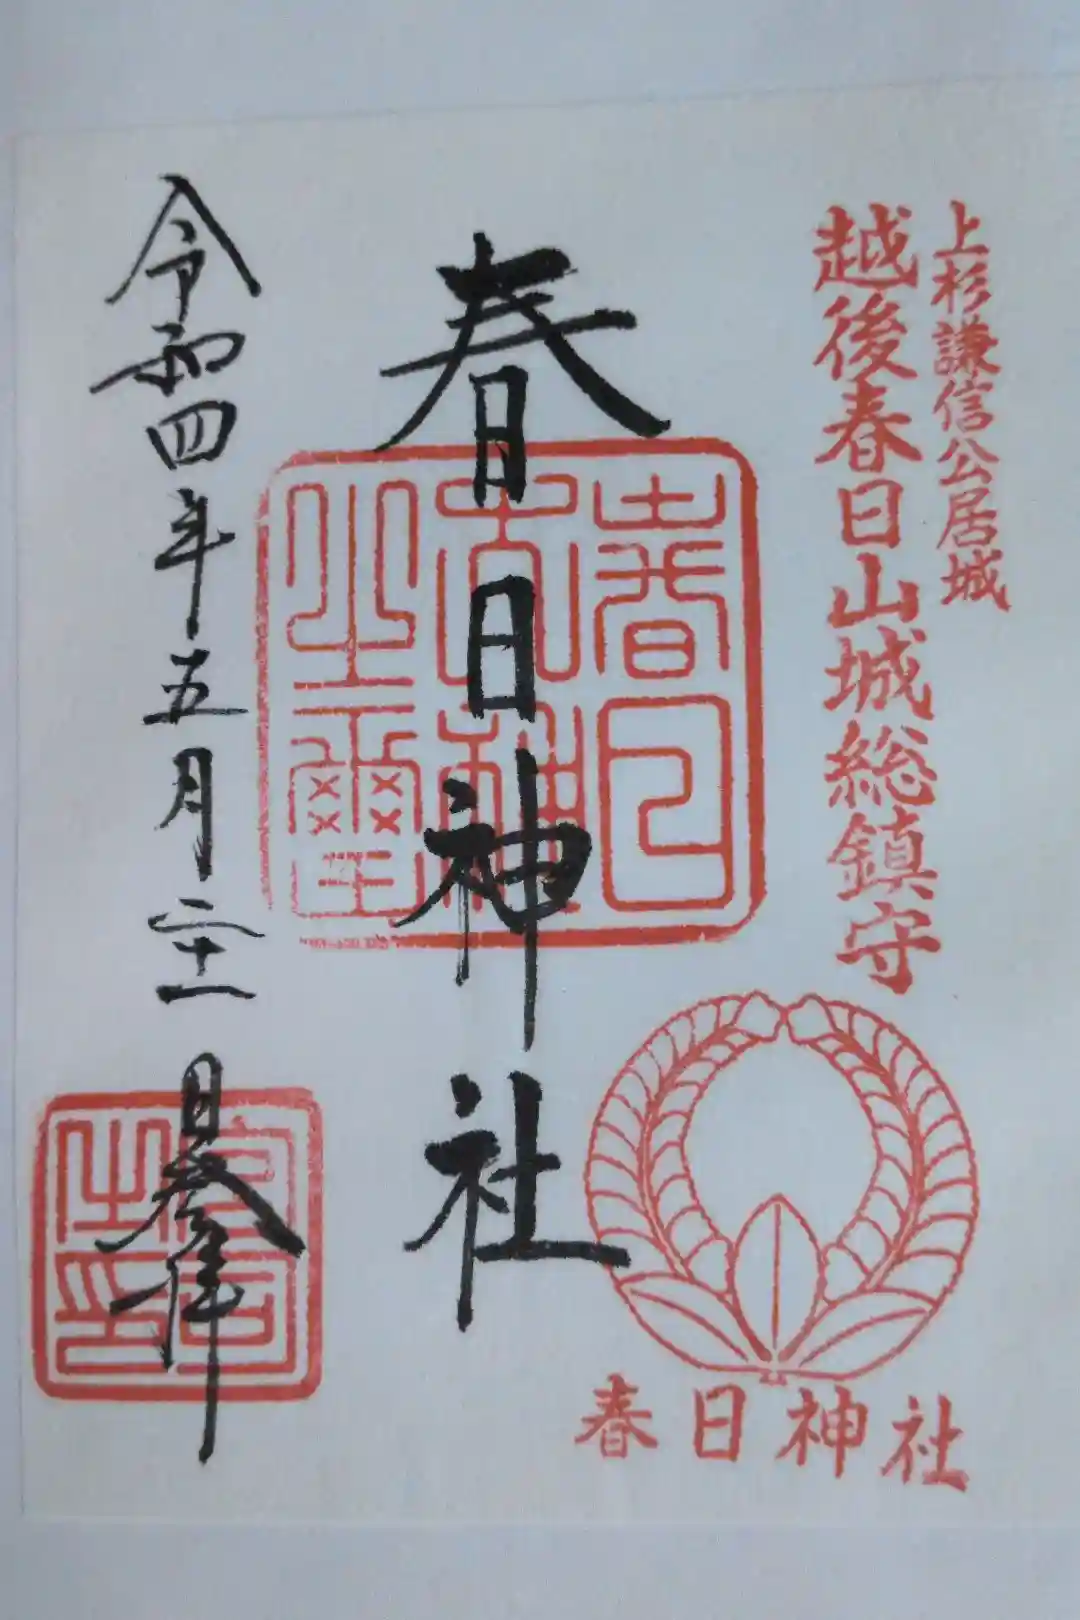 上杉謙信公居城
越後春日山城総鎮守
春日神社
春日大神之璽
春日神社
令和四年五月二十一日参拝